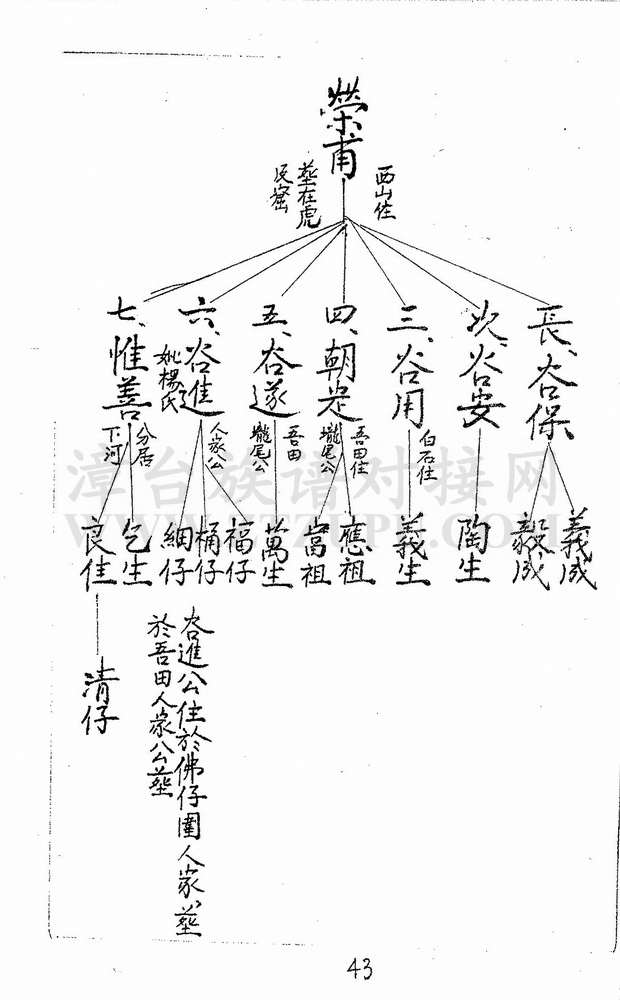 榮甫
西山住
塟在虎
長、谷保
次、谷安
三、谷用
白石住
四、朝
吾田住
壠尾公
五、谷遂
吾田
壠尾公
六、谷進
人家公
妣楊氏
七、惟善
分居
下河
義成
毅成
陶生
義生
應祖
富祖
萬生
福仔
桶仔
細仔
乞生
良佳
清仔
谷進公住於佛仔圍人家塟
於吾田人家公塟
漳台族谱对接网
43